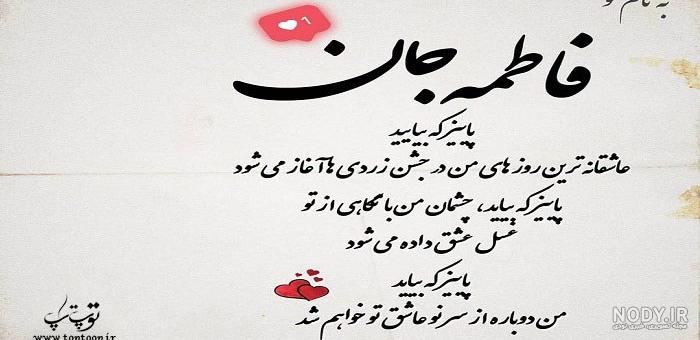 به نام تو
1
فاطمه جان
پاییز که بیایید
عاشقانه ترین روزهای من در جشن زردی ها آغاز می شود
پاییز که بیاید، چشمان من با نگاهی از تو
غسل عشق داده می شود
پاییز که بیاید
من دوباره از سر نو عاشق تو خواهم شد
www.tontoon.ir
NODY.IR